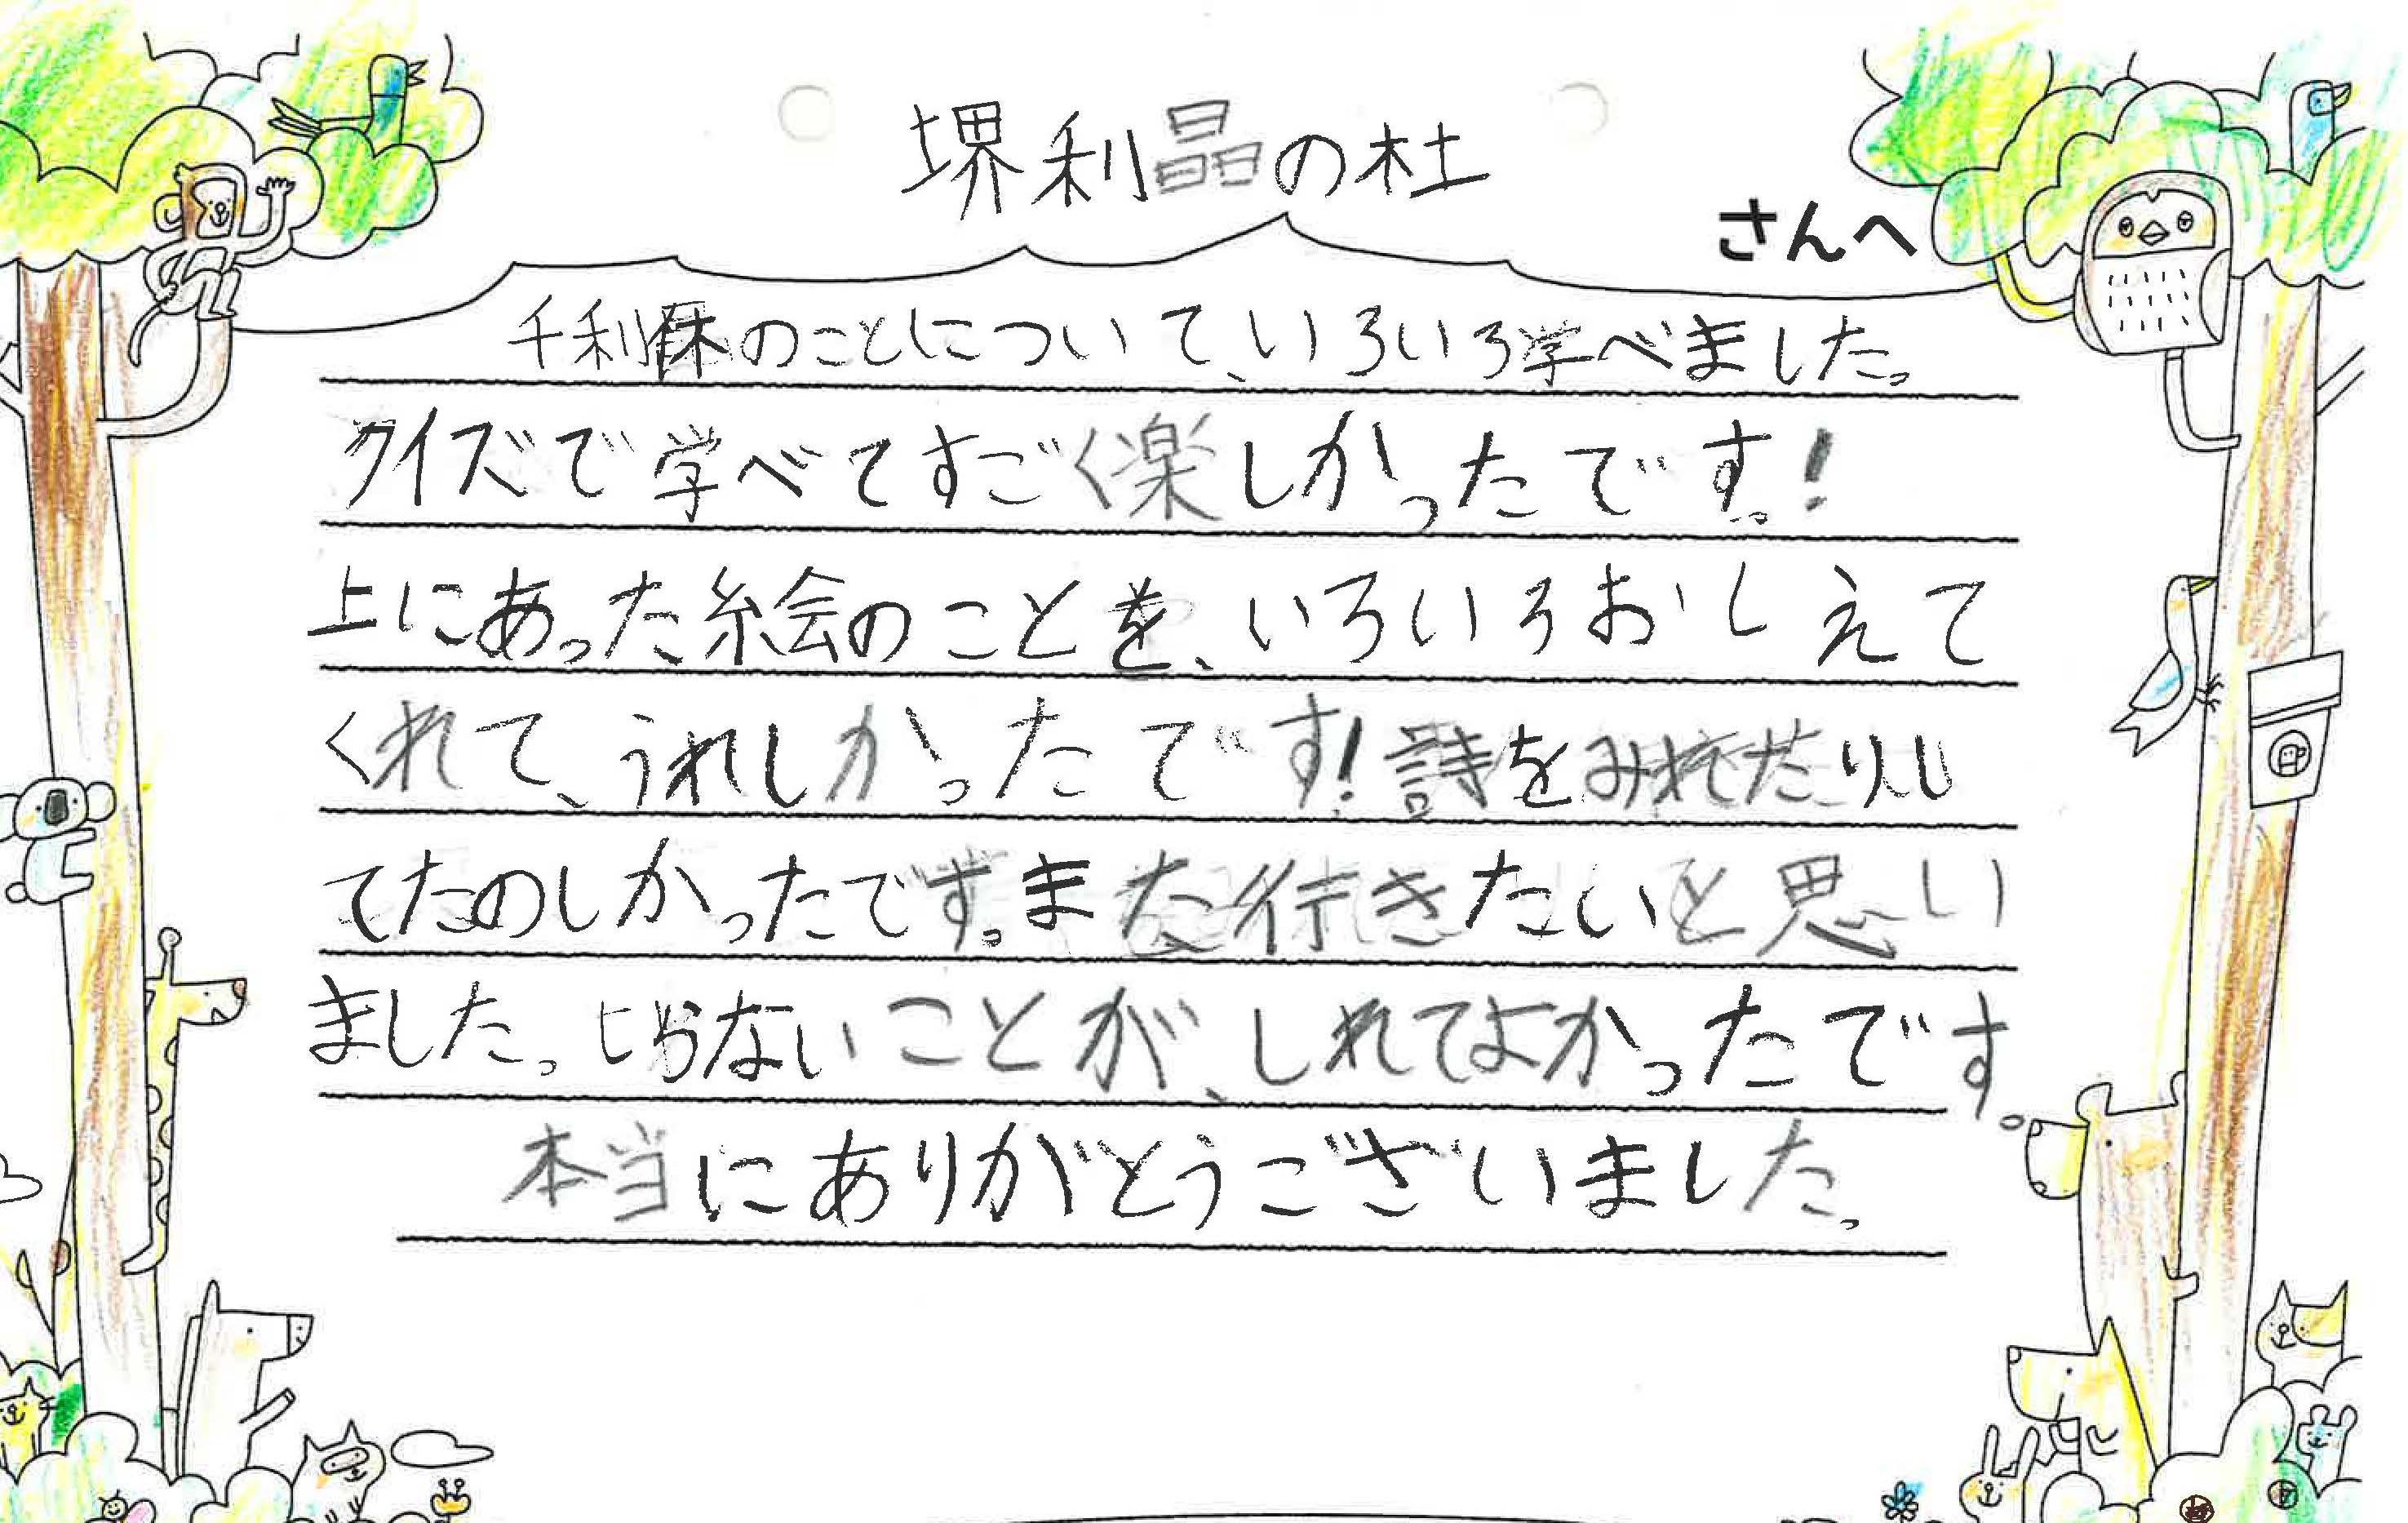 堺利晶の杜
さんへ
千利休のことについて、いろいろ学べました。
クイズで学べてすごく楽しかったです。!
上にあった絵のことを、いろいろおしえて
くれて、うれしかったです!詩をみれたりし
てたのしかったです。また行きたいと思い
ました。しらないことが、しれてよかったです。
本当にありがとうございました。